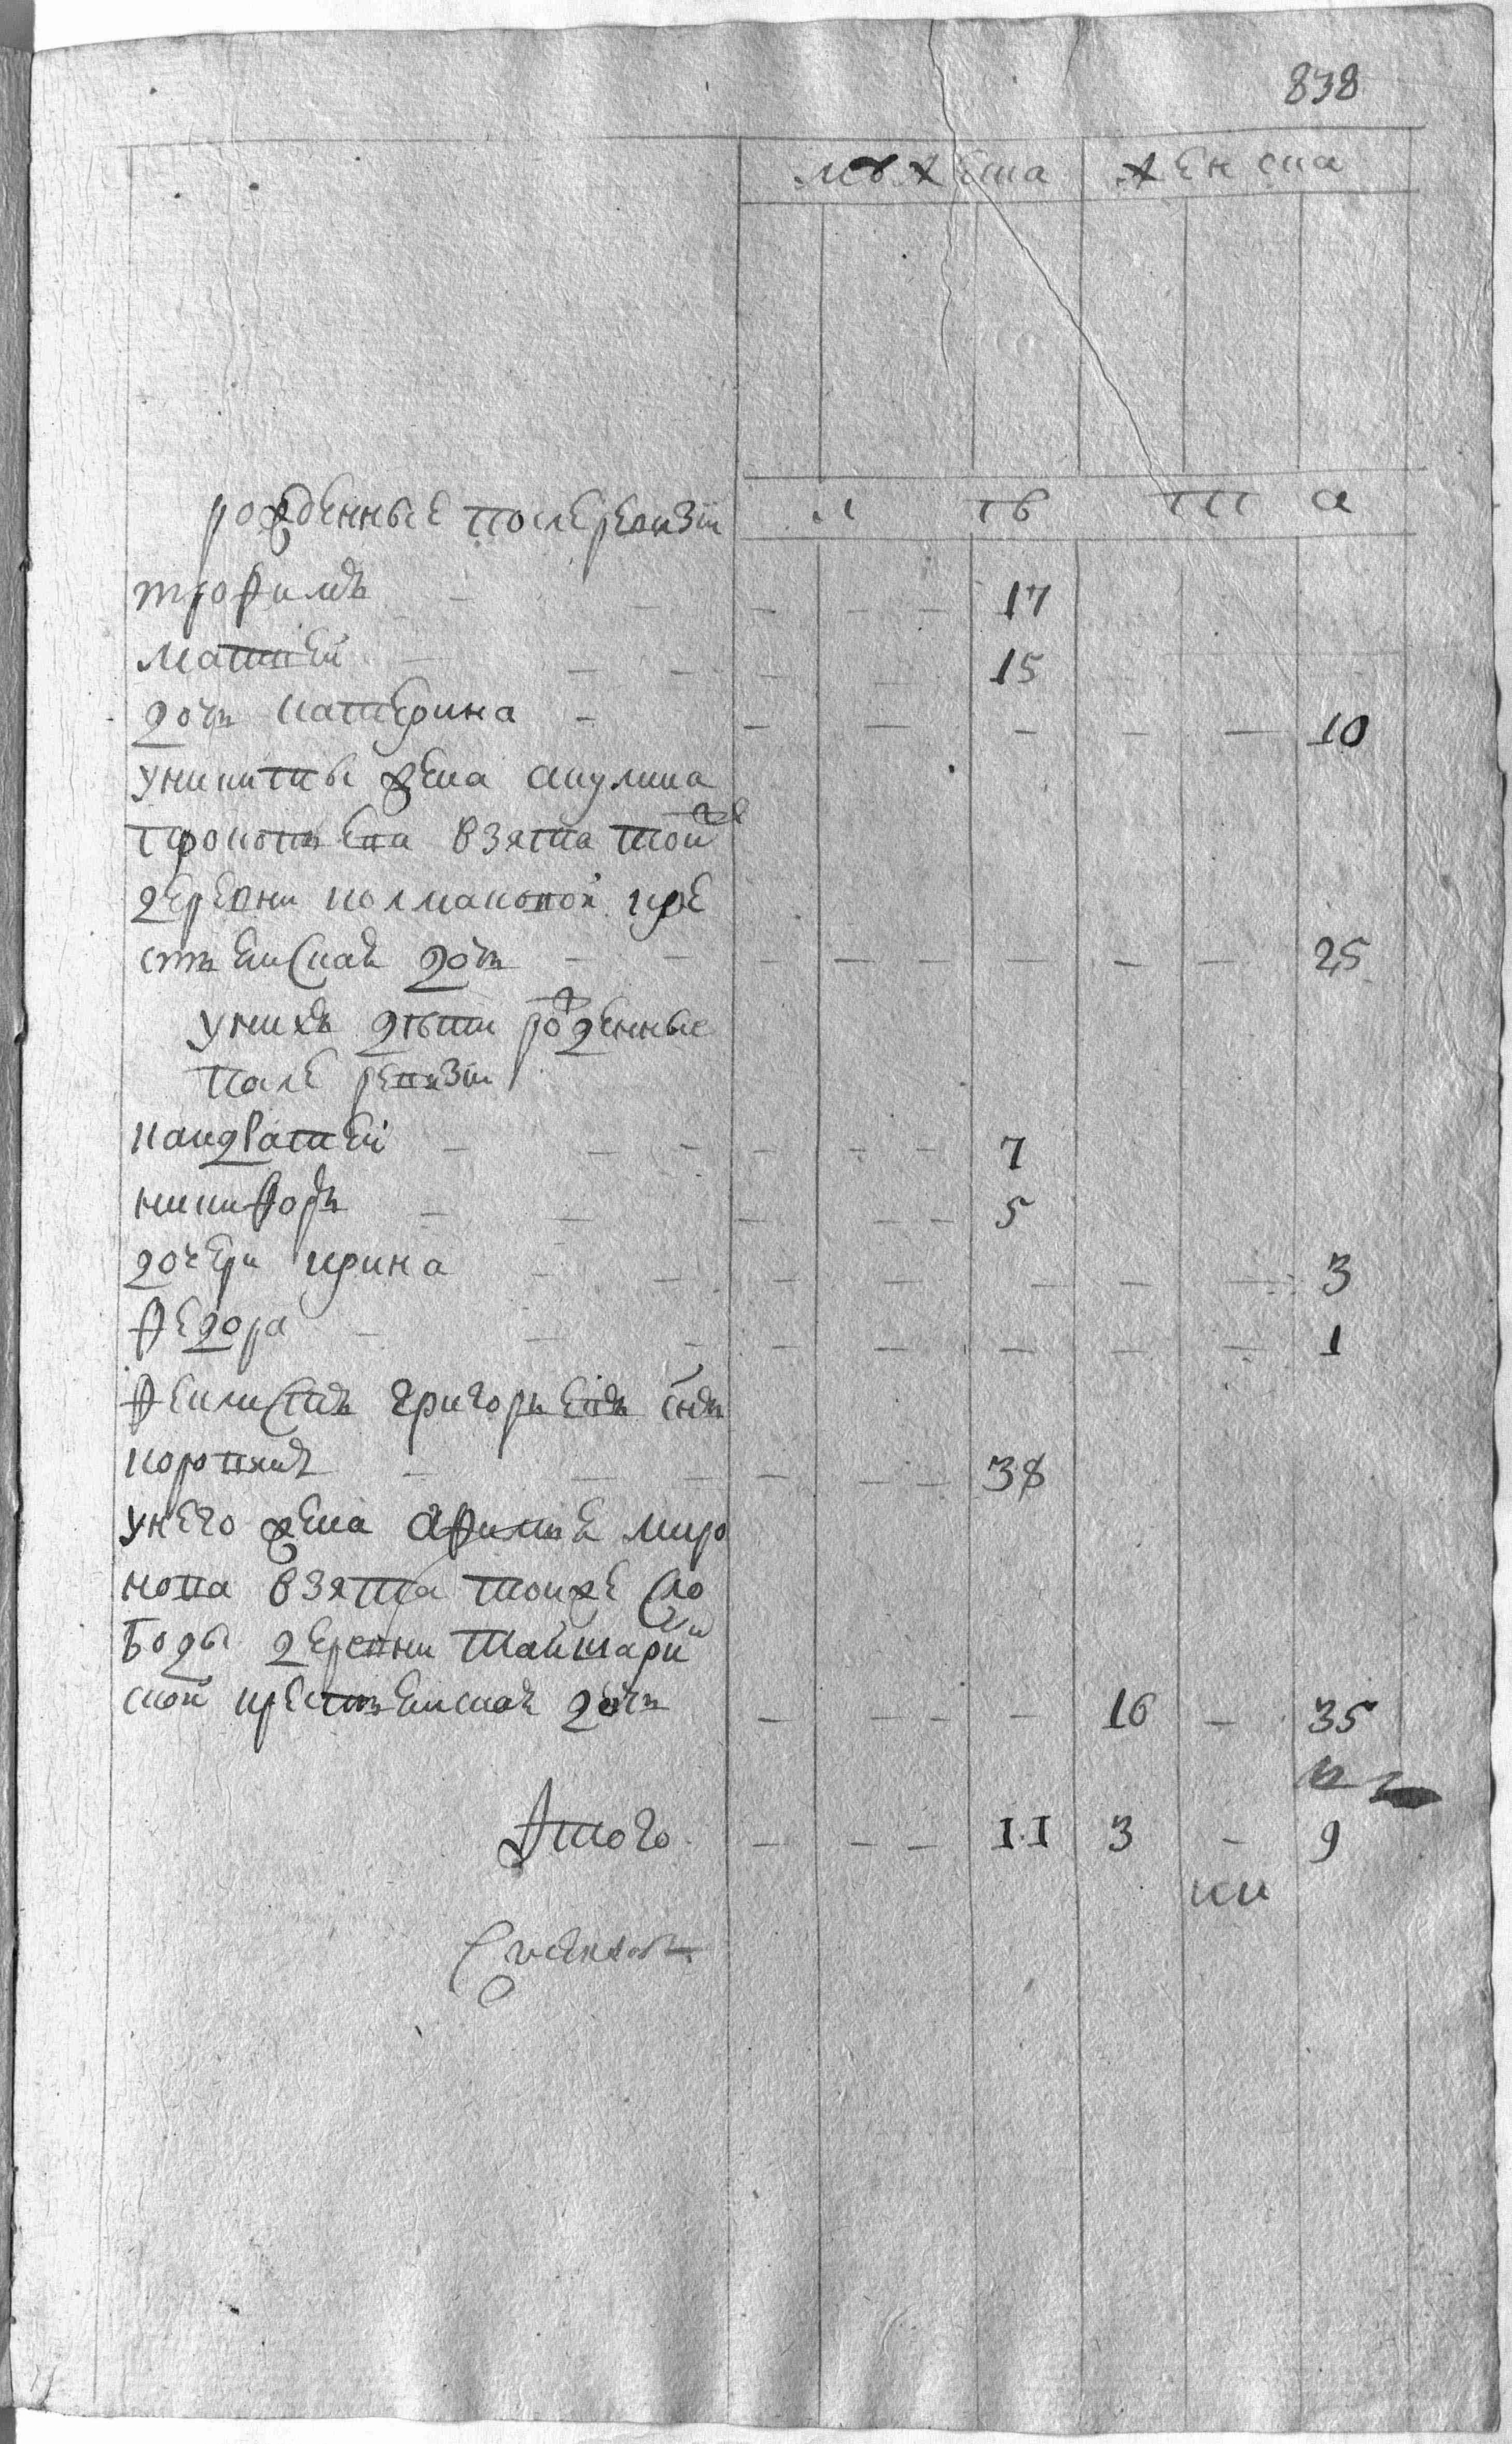 838
мужеска женска
рожденные после ревизіи
трофимъ — — — — — 17
матвей — — — — 15
дочь катерина — — — — — — 10
у никиты жена акулина
прокопьева взята той же
деревни колмаковой кре
стьянская дочь — — — — — — — — 25
у нихъ дѣти рожденные
после ревизіи
кандратей — — — — — — 7
никифоръ — — — — — 5
дочери ирина — — — — — — — 3
федора — — — — — — — — 1
феликстъ григорьевъ сынъ
коровинъ — — — — — — 38
у него жена афимья миро
нова взята той же сло
боды деревни
ской крестьянская дочь — — — — 16 — 35
Итого — — — 11 3 — 9